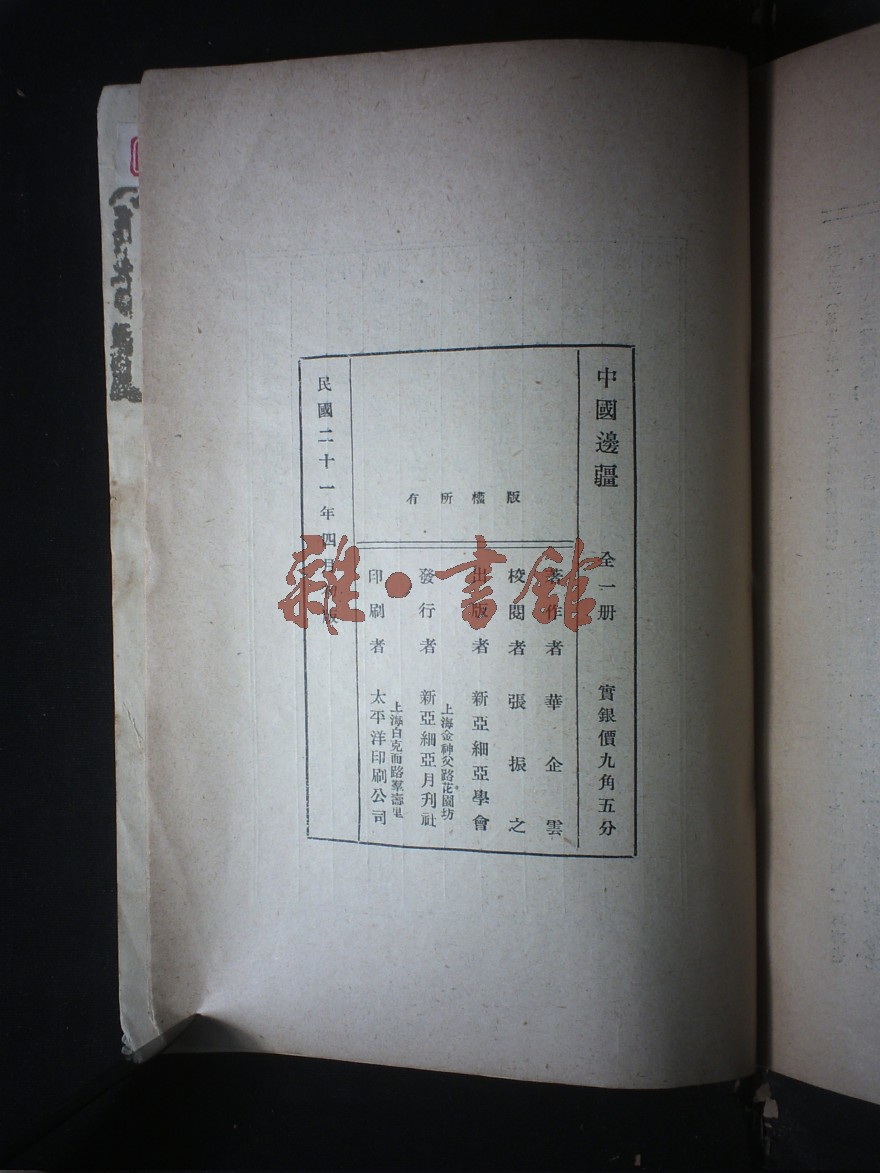 中國邊疆 全一册 實銀價九角五分
版權所有
著作者 華企雲
校閱者 張振之
出版者 新亞細亞學會
上海金神父路花園坊
發行者 新亞細亞月刊社
上海白克而路羣壽里
印刷者 太平洋印刷公司
民國二十一年四月初版
雜·書館